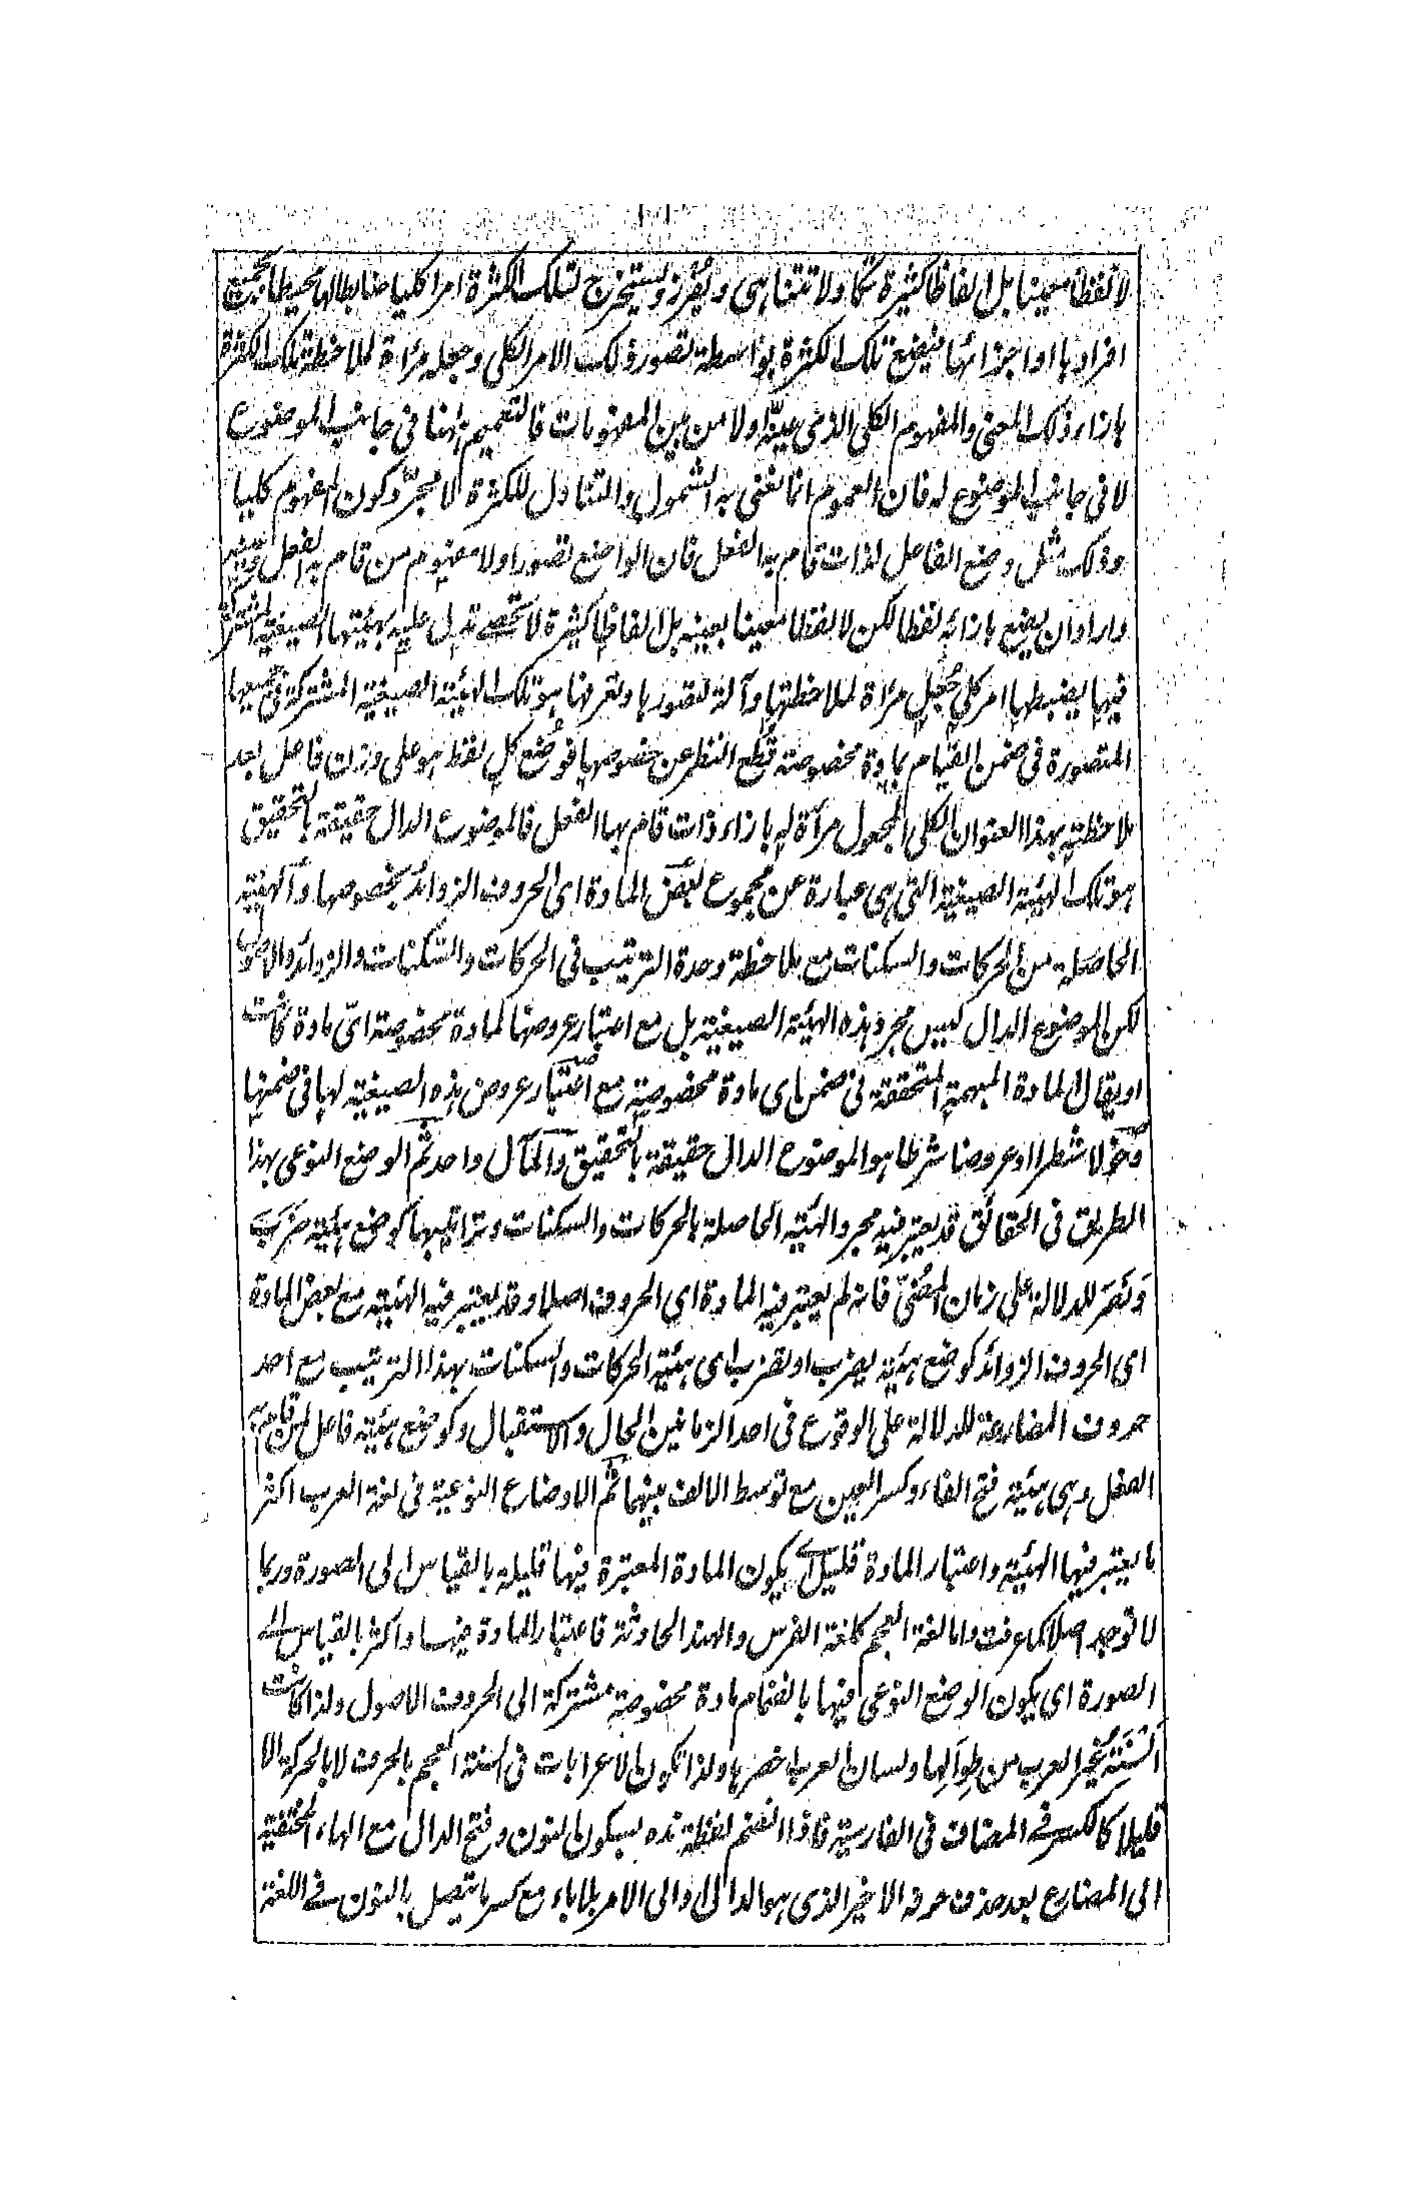 لا لفظا معينا بل الفاظا كثيرة تكاد لا تتناهى ويفرز ويستخرج لتلك الكثرة امرا كليا ضابطا لها محيطا بجميع
افرادها او اجزائها فيضع تلك الكثرة بواسطة تصور ذلك الامر الكلى وجعله مرءاة لملاحظة تلك الكثرة
بازاء ذلك المعنى والمفهوم الكلى الذى عينه اولا من بين المفهومات فالتعميم ههنا فى جانب الموضوع
لا فى جانب الموضوع له فان العموم انما نعنى به الشمول والتناول للكثرة لا مجرد كون المفهوم كليا
وذلك مثل وضع الفاعل لذات قام به الفعل فان الواضع تصور اولا مفهوم من قام به الفعل وعينه
واراد ان يضع بازائه لفظا لكن لا لفظا معينا بعينه بل الفاظا كثيرة لا تحصى تدل عليه بهيئتها الصيغية المشتركة
فيها يضبطها امر كلى جعل مرءاة لملاحظتها وآلة لتصورها وتعرفها هو تلك الهيئة الصيغية المشتركة فى جميعها
المتصورة فى ضمن القيام بمادة مخصوصة قطع النظر عن خصوصها فوضع كل لفظ هو على وزن فاعل بعد
ملاحظته بهذا العنوان الكلى المجعول مرآة له بازاء ذات قام بها الفعل فالموضوع الدال حقيقة بالتحقيق
هو تلك الهيئة الصيغية التى هى عبارة عن مجموع بعض المادة اى الحروف الزوائد بخصوصها والهيئة
الحاصلة من الحركات والسكنات مع ملاحظة وحدة الترتيب فى الحركات والسكنات والزوائد والاصول
لكن الموضوع الدال ليس مجرد هذه الهيئة الصيغية بل مع اعتبار عروضها لمادة مخصوصة اىّ مادة كانت
او يقال المادة المبهمة المتحققة فى ضمن اى مادة مخصوصة مع اعتبار عروض هذه الصيغية لها فى ضمنها
دخولا شطرا او عروضا شرطا هو الموضوع الدال حقيقة بالتحقيق والمآل واحد ثم الوضع النوعى بهذا
الطريق فى الحقائق قد يعتبر فيه مجرد الهيئة الحاصلة بالحركات والسكنات وترتيبها كوضع هيئة ضَرَبَ
وَنَصَرَ للدلالة على زمان المضىّ فانه لم يعتبر فيه المادة اى الحروف اصلا وقد يعتبر فيه الهيئة مع بعض المادة
اى الحروف الزوائد كوضع هيئة يضرب او تضرب اى هيئة الحركات والسكنات بهذا الترتيب مع احد
حروف المضارعة للدلالة على الوقوع فى احد الزمانين الحال والاستقبال وكوضع هيئة فاعل لمن قام به
الفعل وهى هيئة فتح الفاء وكسر العين مع توسط الالف بينهما ثم الاوضاع النوعية فى لغة العرب اكثر
ما يعتبر فيها الهيئة واعتبار المادة قليل اى يكون المادة المعتبرة فيها قليلة بالقياس الى الصورة وربما
لا توجد اصلا كما عرفت واما لغة العجم كلغة الفرس والهند الحادثة فاعتبار المادة فيها اكثر بالقياس الى
الصورة اى يكون الوضع النوعى فيها بانضمام مادة مخصوصة مشتركة الى الحروف الاصول ولذا كانت
السنة غير العرب من طوالها ولسان العرب اخصرها ولذا تكون الاعرابات فى السنة العجم بالحرف لا بالحركة الا
قليلا كالكسر فى المضاف فى الفارسية فاذا انضم لفظة نده بسكون النون وفتح الدال مع الهاء المختفية
الى المضارع بعد حذف حرفه الاخير الذى هو الدال او الى الامر بلا باء مع كسر ما يتصل بالنون فى اللغة